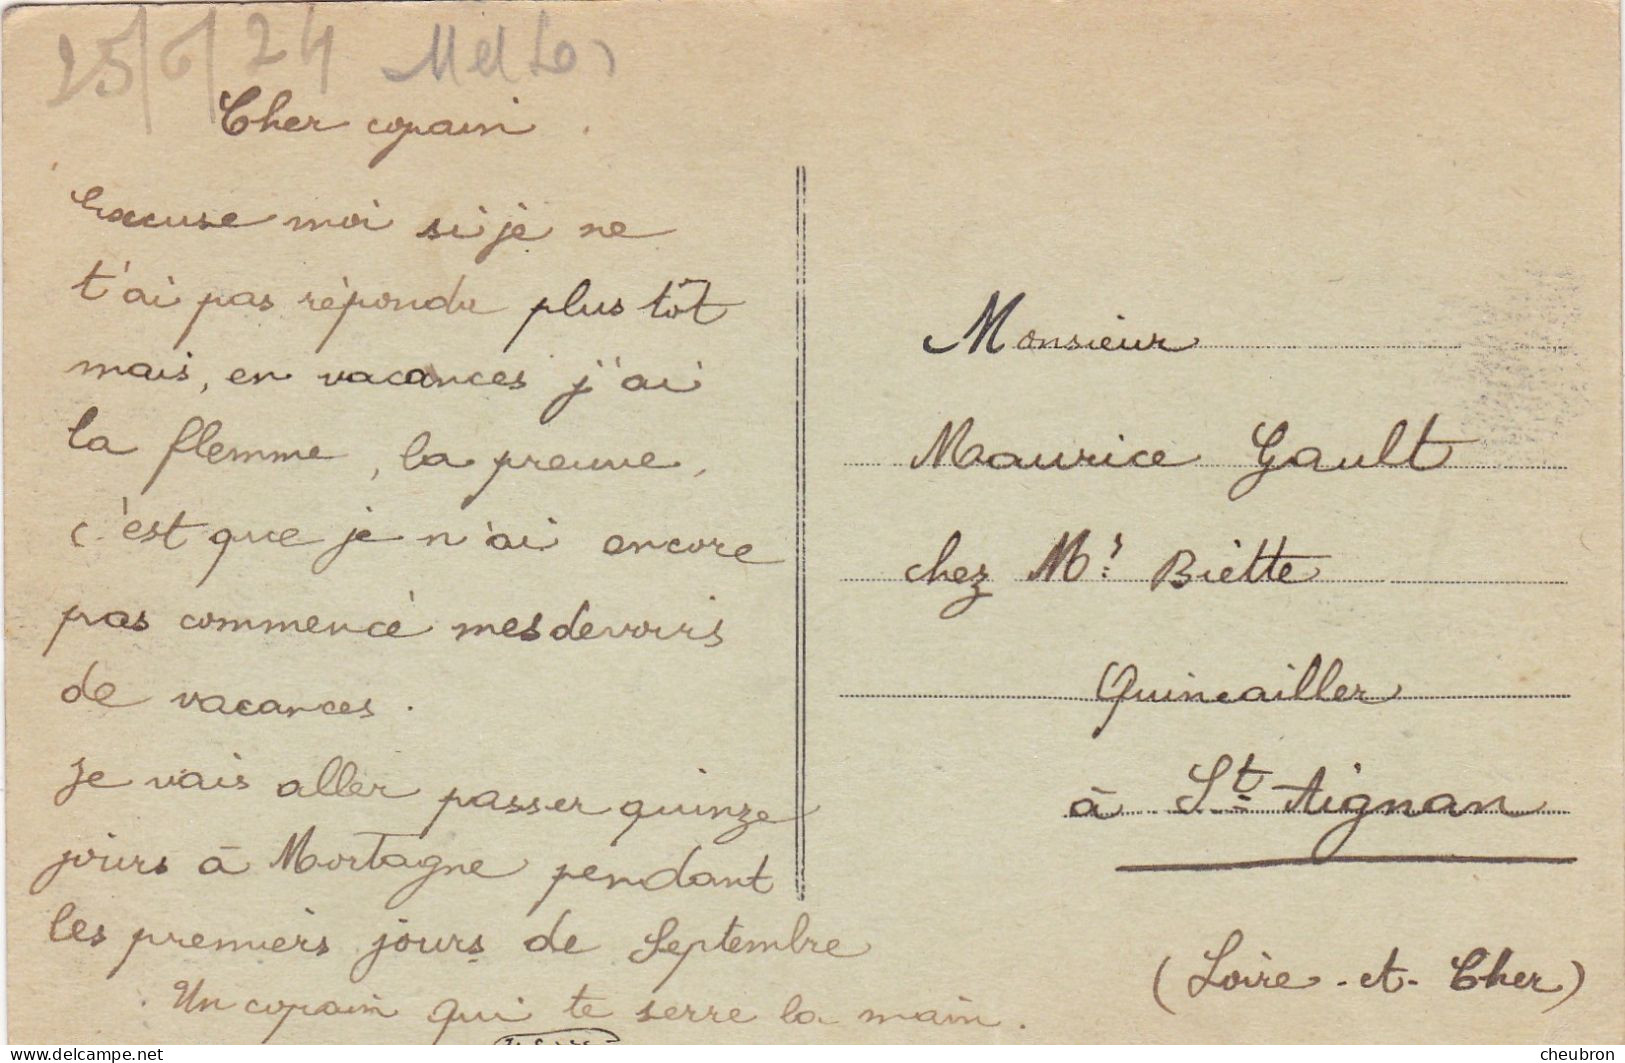 Cher copain.
Excuse moi si je ne
t'ai pas répondu plus tôt
mais, en vacances j'ai
la flemme, la preuve,
c'est que je n'ai encore
pas commencé mes devoirs
de vacances.
Je vais aller passer quinze
jours à Mortagne pendant
les premiers jours de Septembre
Un copain qui te serre la main.
Monsieur
Maurice Gault
chez Mr. Biette
Quincailler
à St Aignan
(Loire-et-Cher)
cheubron